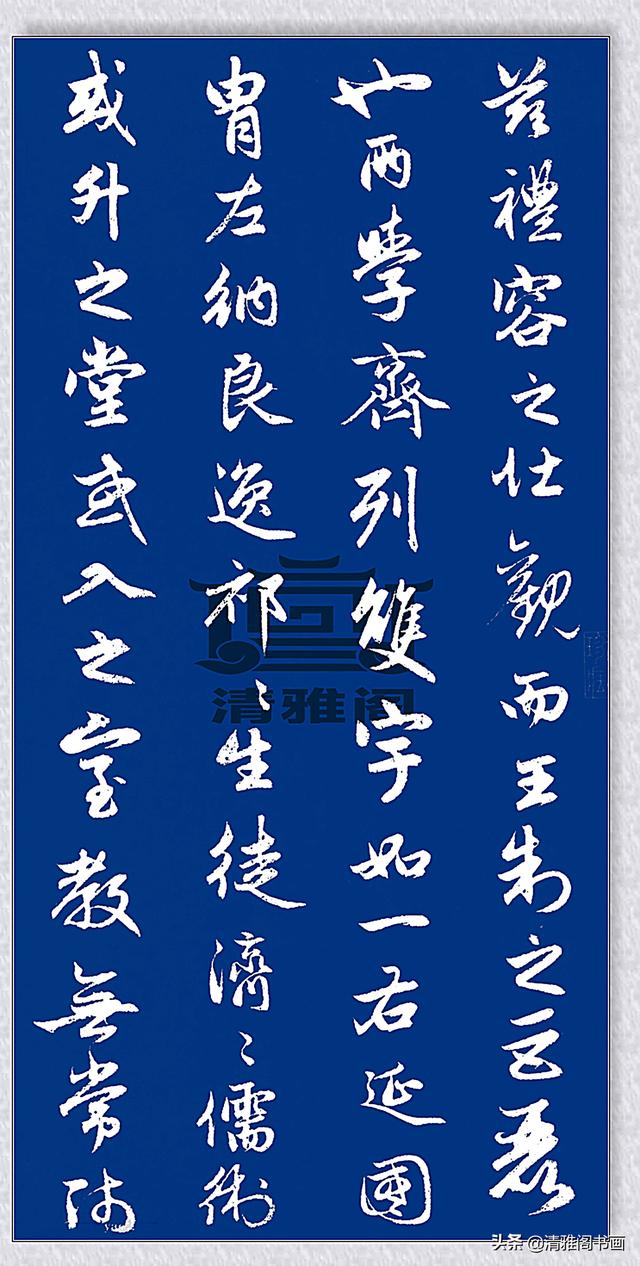 茲禮容之壮觀而王制之巨麗
也两學齊列雙宇如一右延國
胄左納良逸祁〻生徒濟〻儒術
或升之堂或入之室教無常師
清雅阁
头条 @清雅阁书画